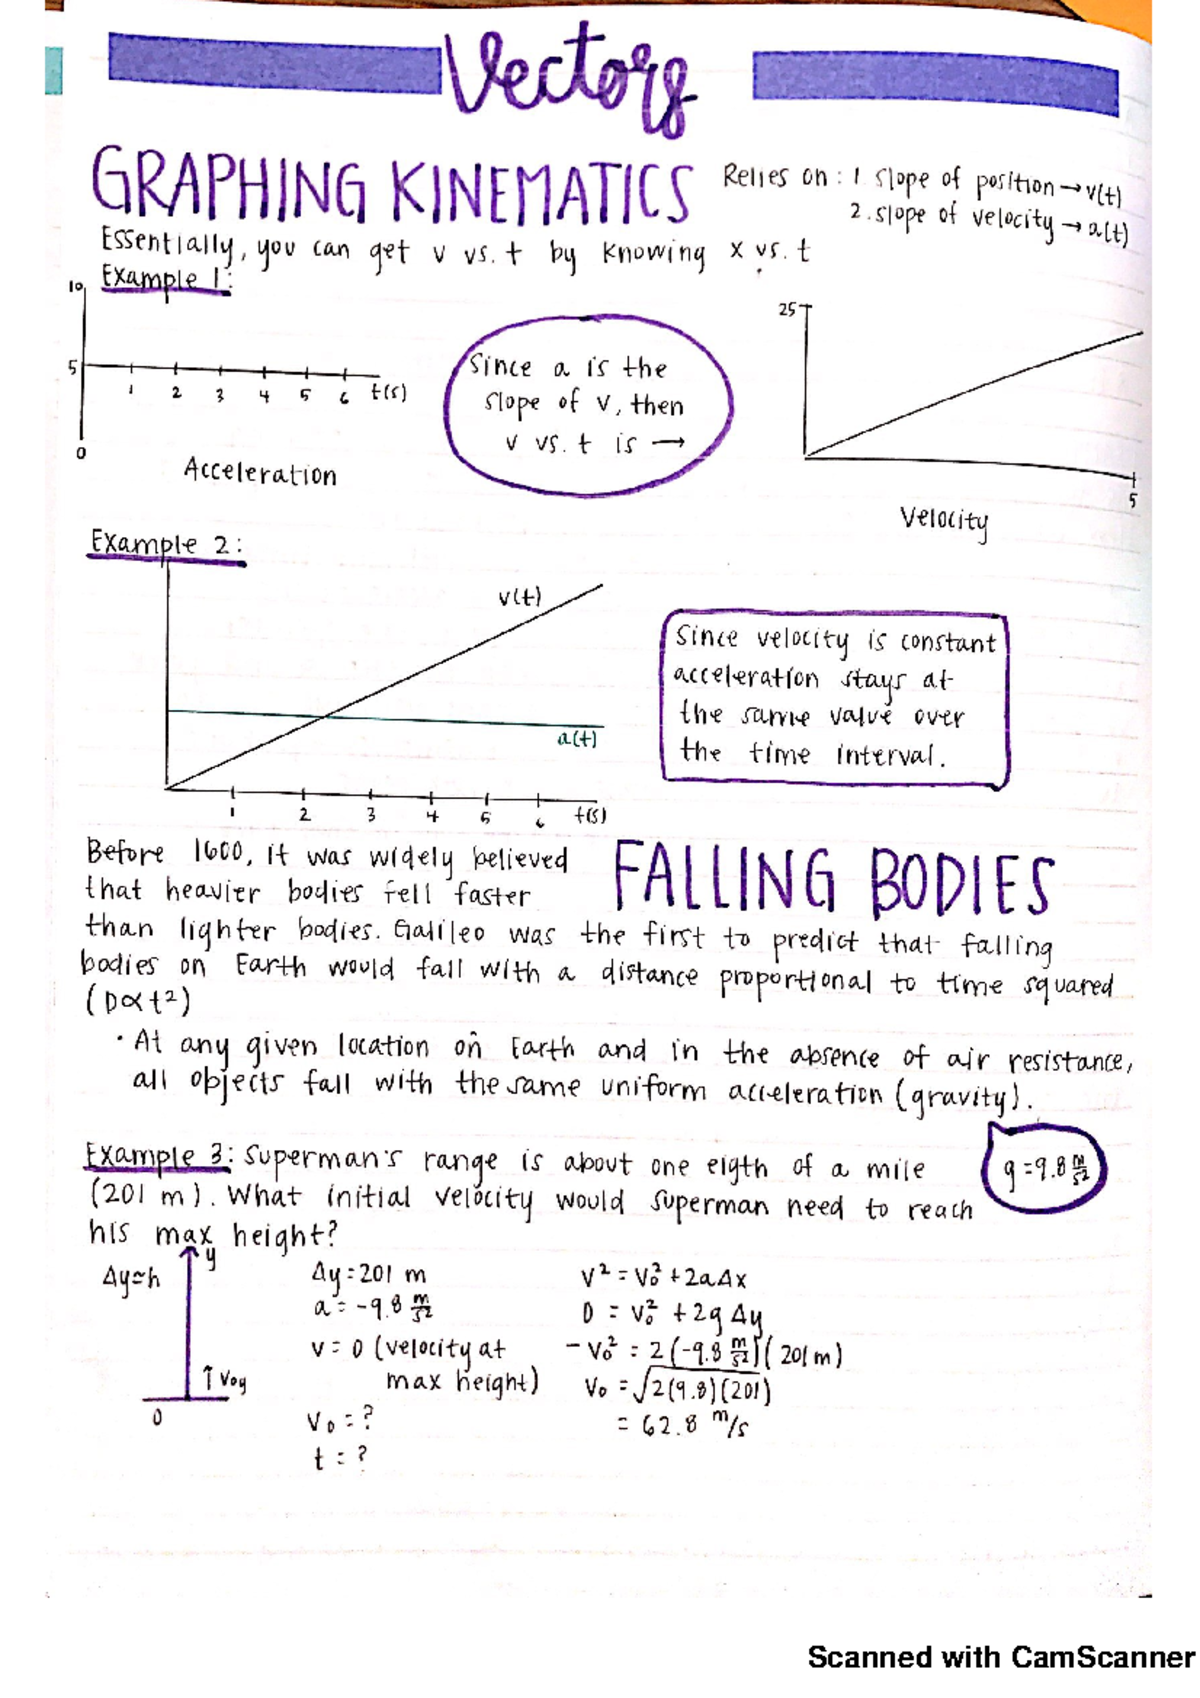 Vectors
GRAPHING KINEMATICS
Relies on : 1 slope of position → v(t)
2. slope of velocity → a(t)
Essentially, you can get v vs. t by knowing x vs. t
Example 1:
10
5
0
1 2 3 4 5 6 t(s)
Acceleration
Since a is the
slope of v, then
v vs. t is →
25
5
Velocity
Example 2:
v(t)
a(t)
1 2 3 4 5 6 t(s)
Since velocity is constant
acceleration stays at
the same value over
the time interval.
FALLING BODIES
Before 1600, it was widely believed
that heavier bodies fell faster
than lighter bodies. Galileo was the first to predict that falling
bodies on Earth would fall with a distance proportional to time squared
(D∝t²)
· At any given location on Earth and in the absence of air resistance,
all objects fall with the same uniform acceleration (gravity).
g = 9.8 m/s²
Example 3: Superman's range is about one eigth of a mile
(201 m). What initial velocity would superman need to reach
his max height?
Δy=h
y
↑ v₀y
0
Δy = 201 m
a = -9.8 m/s²
v = 0 (velocity at
max height)
v₀ = ?
t = ?
v² = v₀² + 2aΔx
0 = v₀² + 2gΔy
-v₀² = 2(-9.8 m/s²)(201m)
v₀ = √2(9.8)(201)
= 62.8 m/s
Scanned with CamScanner